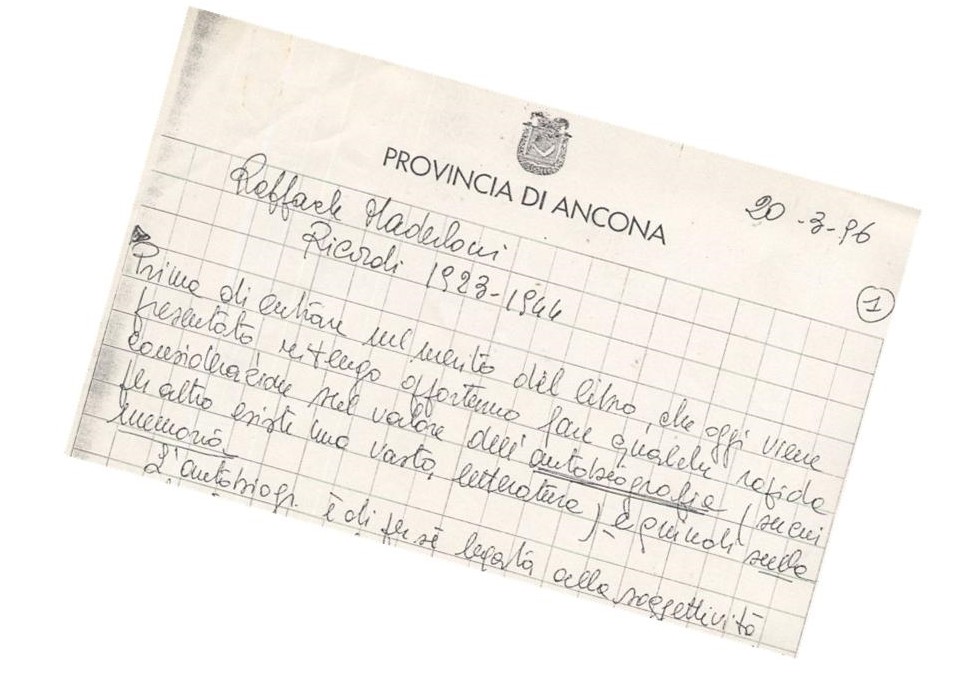 PROVINCIA DI ANCONA
20-3-96
Raffaele Maderloni
Ricordi 1923-1944
1
Prima di entrare nel merito del libro, che oggi viene
presentato ritengo opportuno fare qualche rapida
considerazione sul valore dell'autobiografia (su cui
per altro esiste una vasta letteratura) e quindi sulla
memoria
L'autobiogr. è di per sé legata alla soggettività